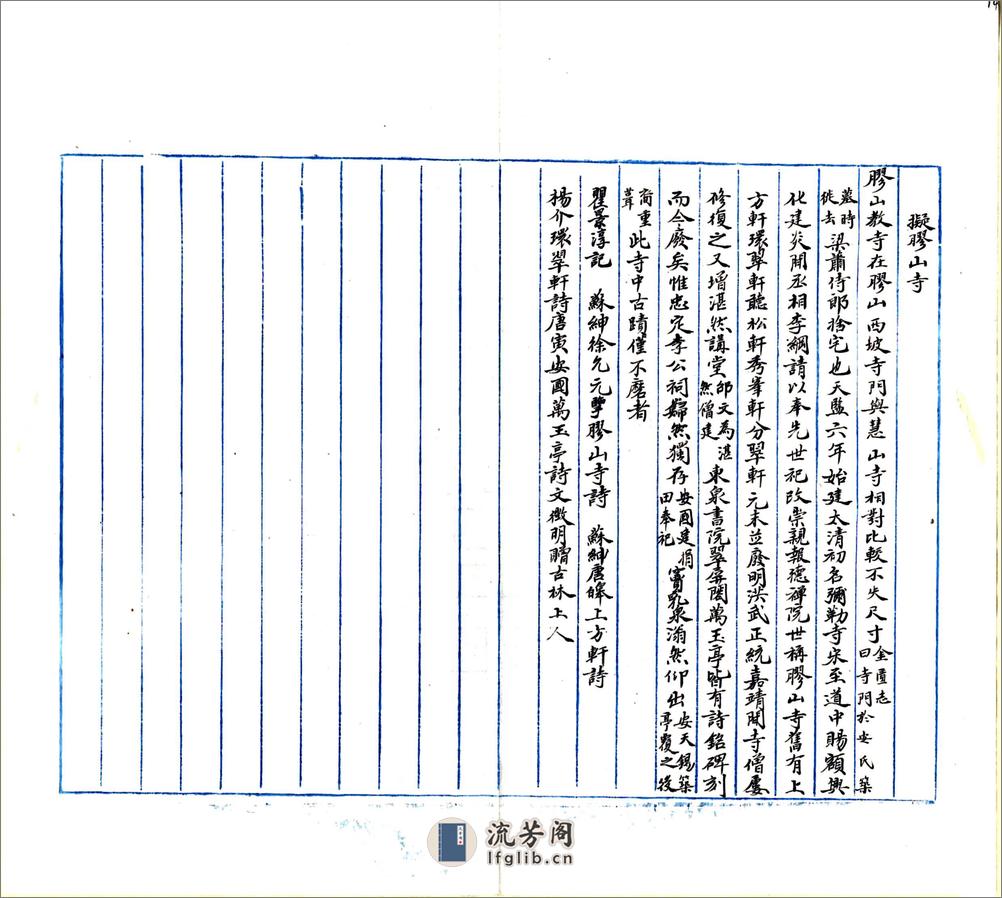 擬膠山寺
膠山教寺在膠山西坡寺門與慧山寺相對比較不失尺寸金匱志曰寺門於安氏築
墓時徙去梁蕭侍郎捨宅也天監六年始建太清初名彌勒寺宋至道中賜額興
化建炎間丞相李綱請以奉先世祀改崇親報德禪院世稱膠山寺舊有上
方軒環翠軒聽松軒秀峯軒分翠軒元末並廢明洪武正統嘉靖間寺僧屢
修復之又增湛然講堂邵文為湛然僧建東泉書院翠屏閣萬玉亭皆有詩銘碑刻
而今廢矣惟忠定李公祠巋然獨存安國建捐田奉祀竇乳泉滃然仰出安天錫築亭覆之後
裔重葺此寺中古蹟僅不磨者
瞿景淳記 蘇紳徐允元擊膠山寺詩 蘇紳唐皞上方軒詩
楊介環翠軒詩唐寅安國萬玉亭詩文徵明贈古林上人
流芳阁
lfglib.cn